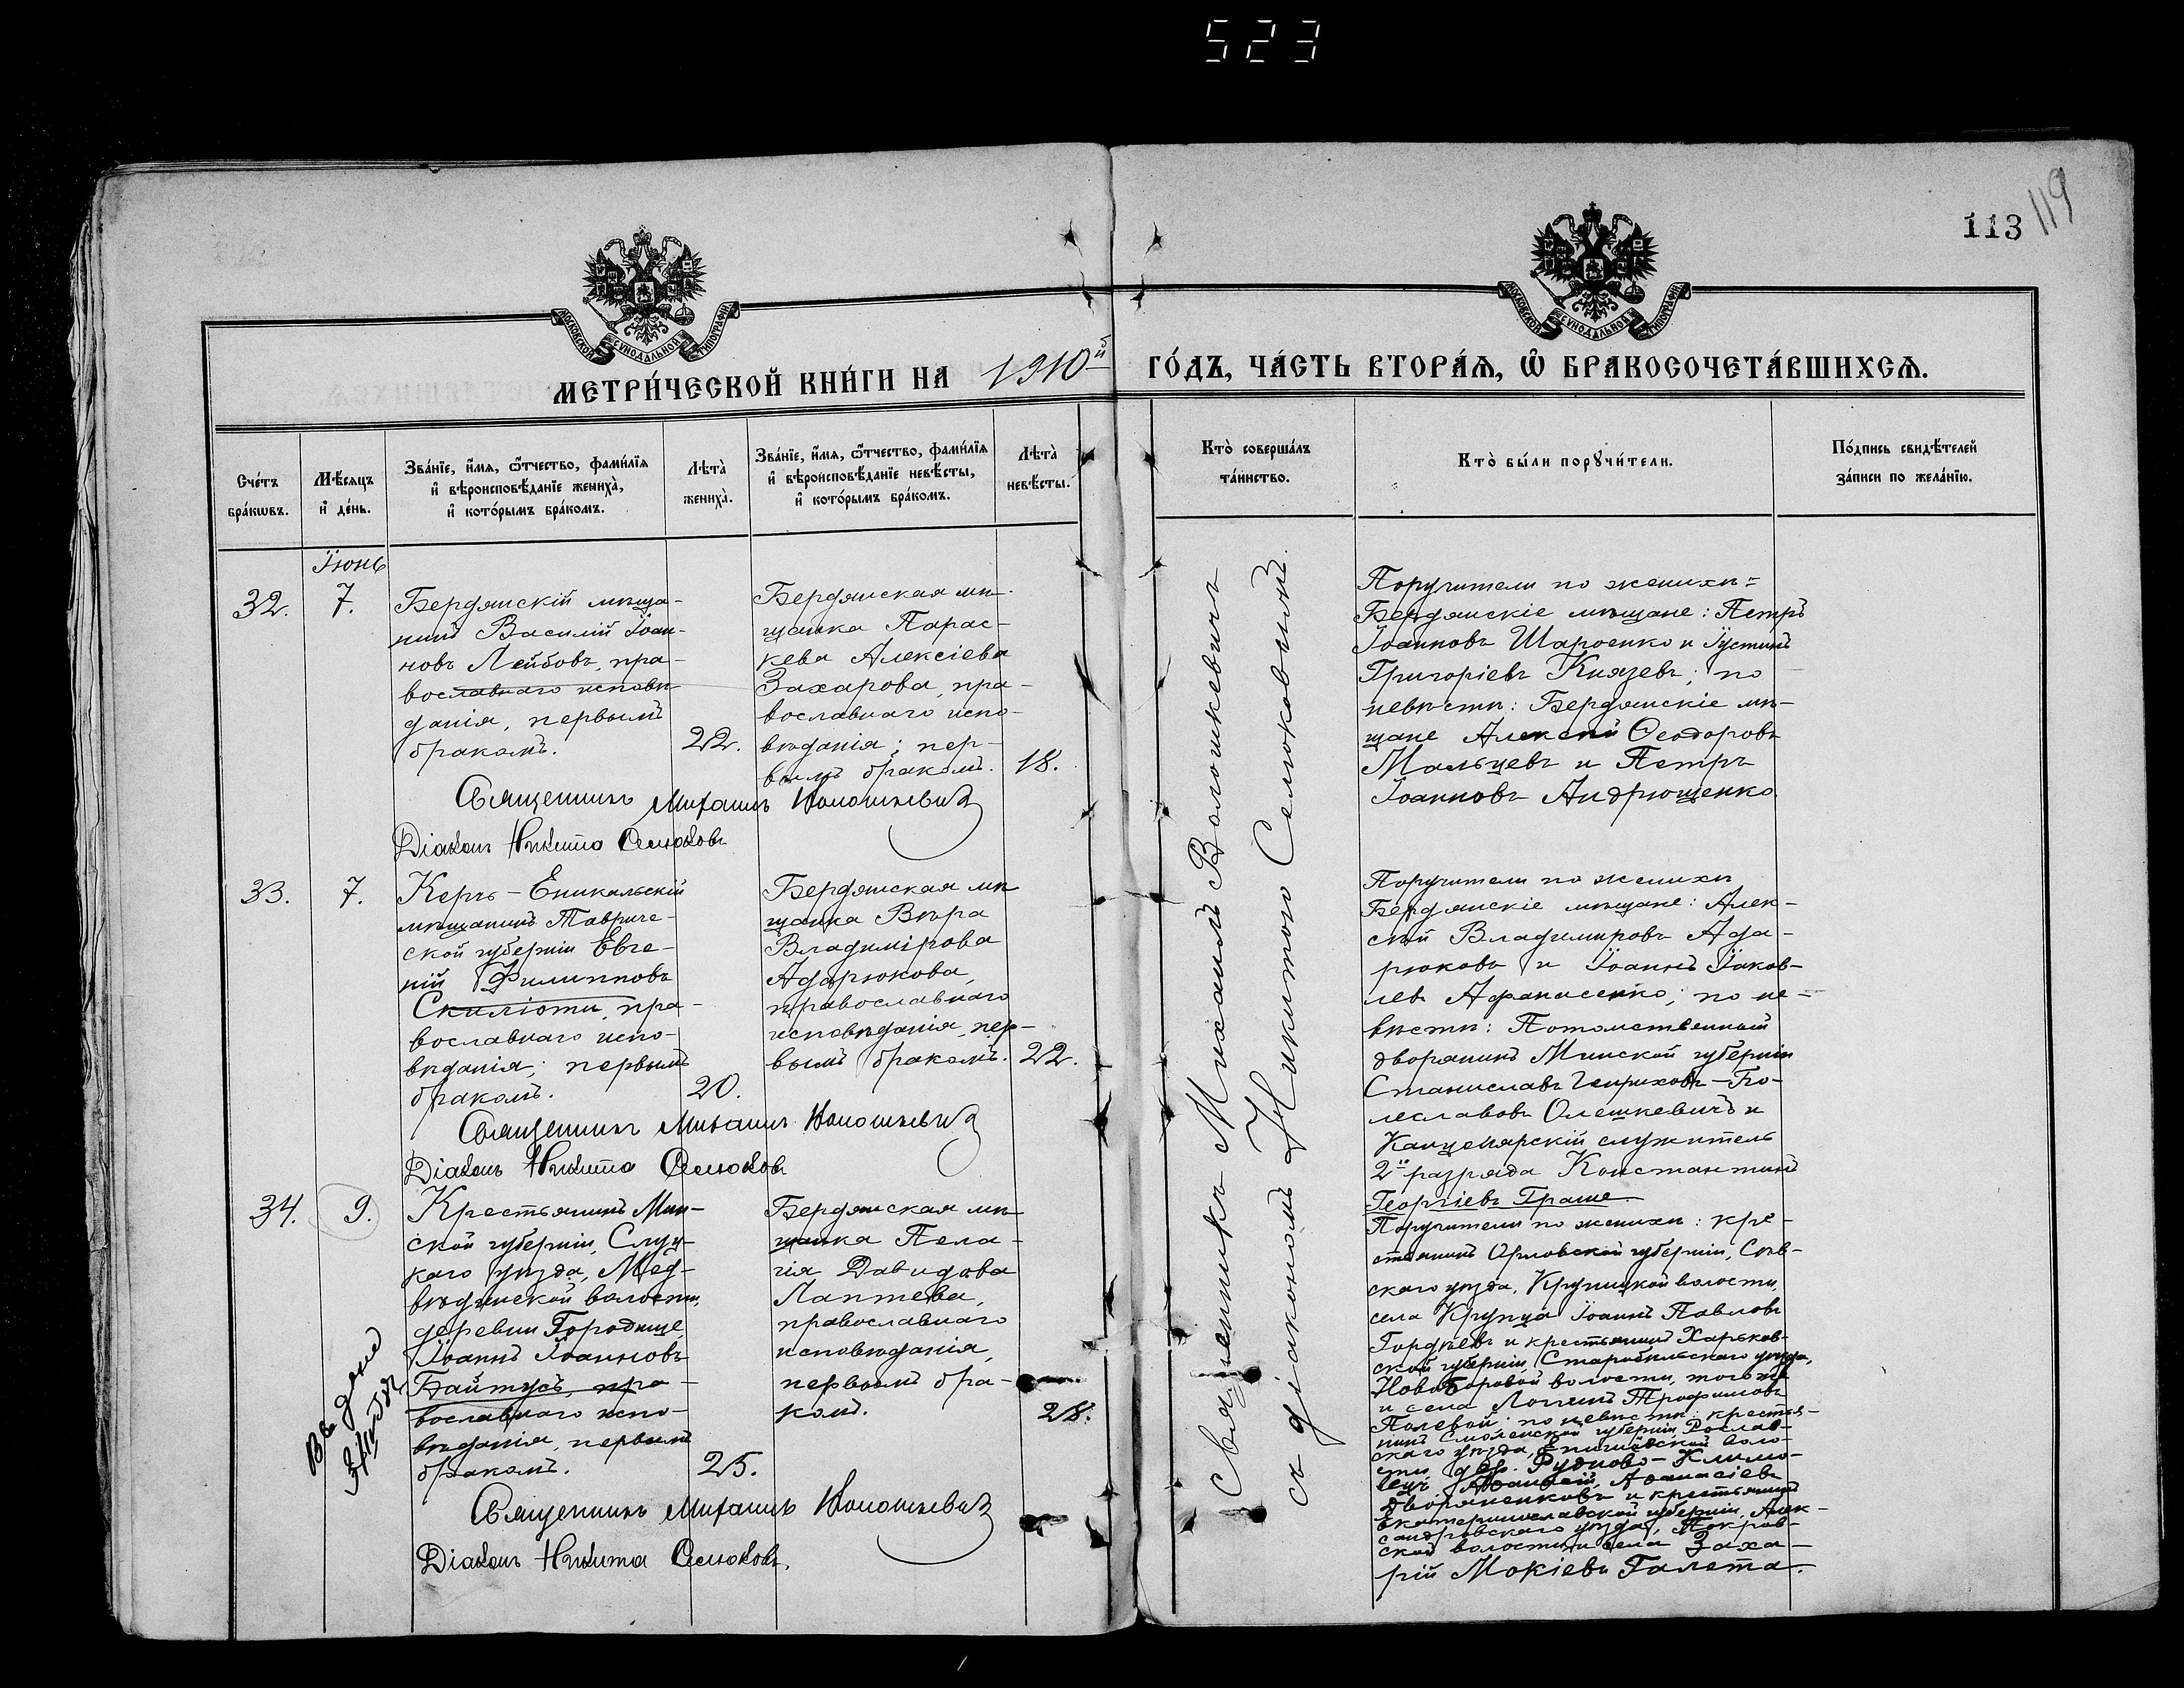 523
113
119
МОСКОВСКОЙ СѴНОДАЛЬНОЙ ТИПОГРАФІИ
МОСКОВСКОЙ СѴНОДАЛЬНОЙ ТИПОГРАФІИ
МЕТРИ́ЧЕСКОЙ КНИ́ГИ НА 1910й ГО́ДЪ, ЧА́СТЬ ВТОРА́Я, Ѡ҆ БРАКОСОЧЕТА́ВШИХСѦ.
Сче́тъ
бра́кѡвъ.
Мѣ́сяцъ
и҆ де́нь.
Зва́нїе, и҆́мѧ, ѻ҆́тчество, фами́лїѧ
и҆ вѣроисповѣ́данїе жениха̀,
и҆ кото́рымъ бра́комъ.
Лѣта̀
жениха̀.
Зва́нїе, и҆́мѧ, ѻ҆́тчество, фами́лїѧ
и҆ вѣроисповѣ́данїе невѣ́сты,
и҆ кото́рымъ бра́комъ.
Лѣта̀
невѣ́сты.
Кто̀ соверша́лъ
та́инство.
Кто̀ бы́ли порꙋчи́тели.
По́дпись свидѣ́телей
за́писи по жела́нїю.
Іюнь
32.
7.
Бердянскій мѣща-
нинъ Василій Іоан-
новъ Лейбовъ, пра-
вославнаго исповѣ-
данія, первымъ
бракомъ.
22.
Бердянская мѣ-
щанка Парас-
кева Алексіева
Захарова, пра-
вославнаго испо-
вѣданія; пер-
вымъ бракомъ.
18.
Священникъ Михаилъ Волошкевичъ
Діаконъ Никита Селюковъ
Поручители по женихѣ=
Бердянскіе мѣщане: Петръ
Іоанновъ Шароенко и Іустинъ
Григоріевъ Князевъ; по
невѣстѣ: Бердянскіе мѣ-
щане Алексѣй Ѳеодоровъ
Мальцевъ и Петръ
Іоанновъ Андрющенко
33.
7.
Керчь-Еникальскій
мѣщанинъ Тавриче-
ской губерніи Евге-
ній Филипповъ
Скиліоти, пра-
вославнаго испо-
вѣданія; первымъ
бракомъ.
20.
Бердянская мѣ
щанка Вѣра
Владимірова
Адарюкова,
православнаго
исповѣданія, пер-
вымъ бракомъ.
22.
Священникъ Михаилъ Волошкевичъ
Діаконъ Никита Селюковъ
Поручители по женихѣ
Бердянскіе мѣщане: Алек-
сѣй Владиміровъ Ада-
рюковъ и Іоаннъ Іаков-
левъ Афанасенко; по не-
вѣстѣ: Потомственный
дворянинъ Минской губерніи
Станиславъ Генриховъ-Бо-
леславовъ Олешкевичъ и
Канцелярскій служитель
2го разряда Константинъ
Георгіевъ Граше
34.
9.
Крестьянинъ Мин-
ской губерніи, Слуц-
каго уѣзда, Мед-
вѣдинской волости,
деревни Городище,
Іоаннъ Іоанновъ
Байтусъ, пра-
вославнаго испо-
вѣданія, первымъ
бракомъ.
25.
Бердянская мѣ
щанка Пела-
гія Давидова
Лаптева,
православнаго
исповѣданія,
первымъ бра-
комъ.
28.
Священникъ Михаилъ Волошкевичъ
Діаконъ Никита Селюковъ.
Поручители по женихѣ: кре-
стьянинъ Орловской губерніи, Сѣв-
скаго уѣзда, Крупицкой волости,
села Крупца Іоаннъ Павловъ
Гордѣевъ и крестьянинъ Харьков-
ской губерніи, Старобѣльскаго уѣзда,
Новоборовой волости, той же
и села Логинъ Трофимовъ
Полевой; по невѣстѣ: крестья-
нинъ Смоленской губерніи, Рослав-
скаго уѣзда, воло-
сти, дер. Рудково-Климо-
Аѳанасіевъ
Дворяненковъ и крестьянинъ
Екатеринославской губерніи, Алек-
сандровскаго уѣзда, Покров-
ской волости и села Заха-
рій Мокіевъ Галета.
Священникъ Михаилъ Волошкевичъ
съ діакономъ Никитою Селюковымъ.